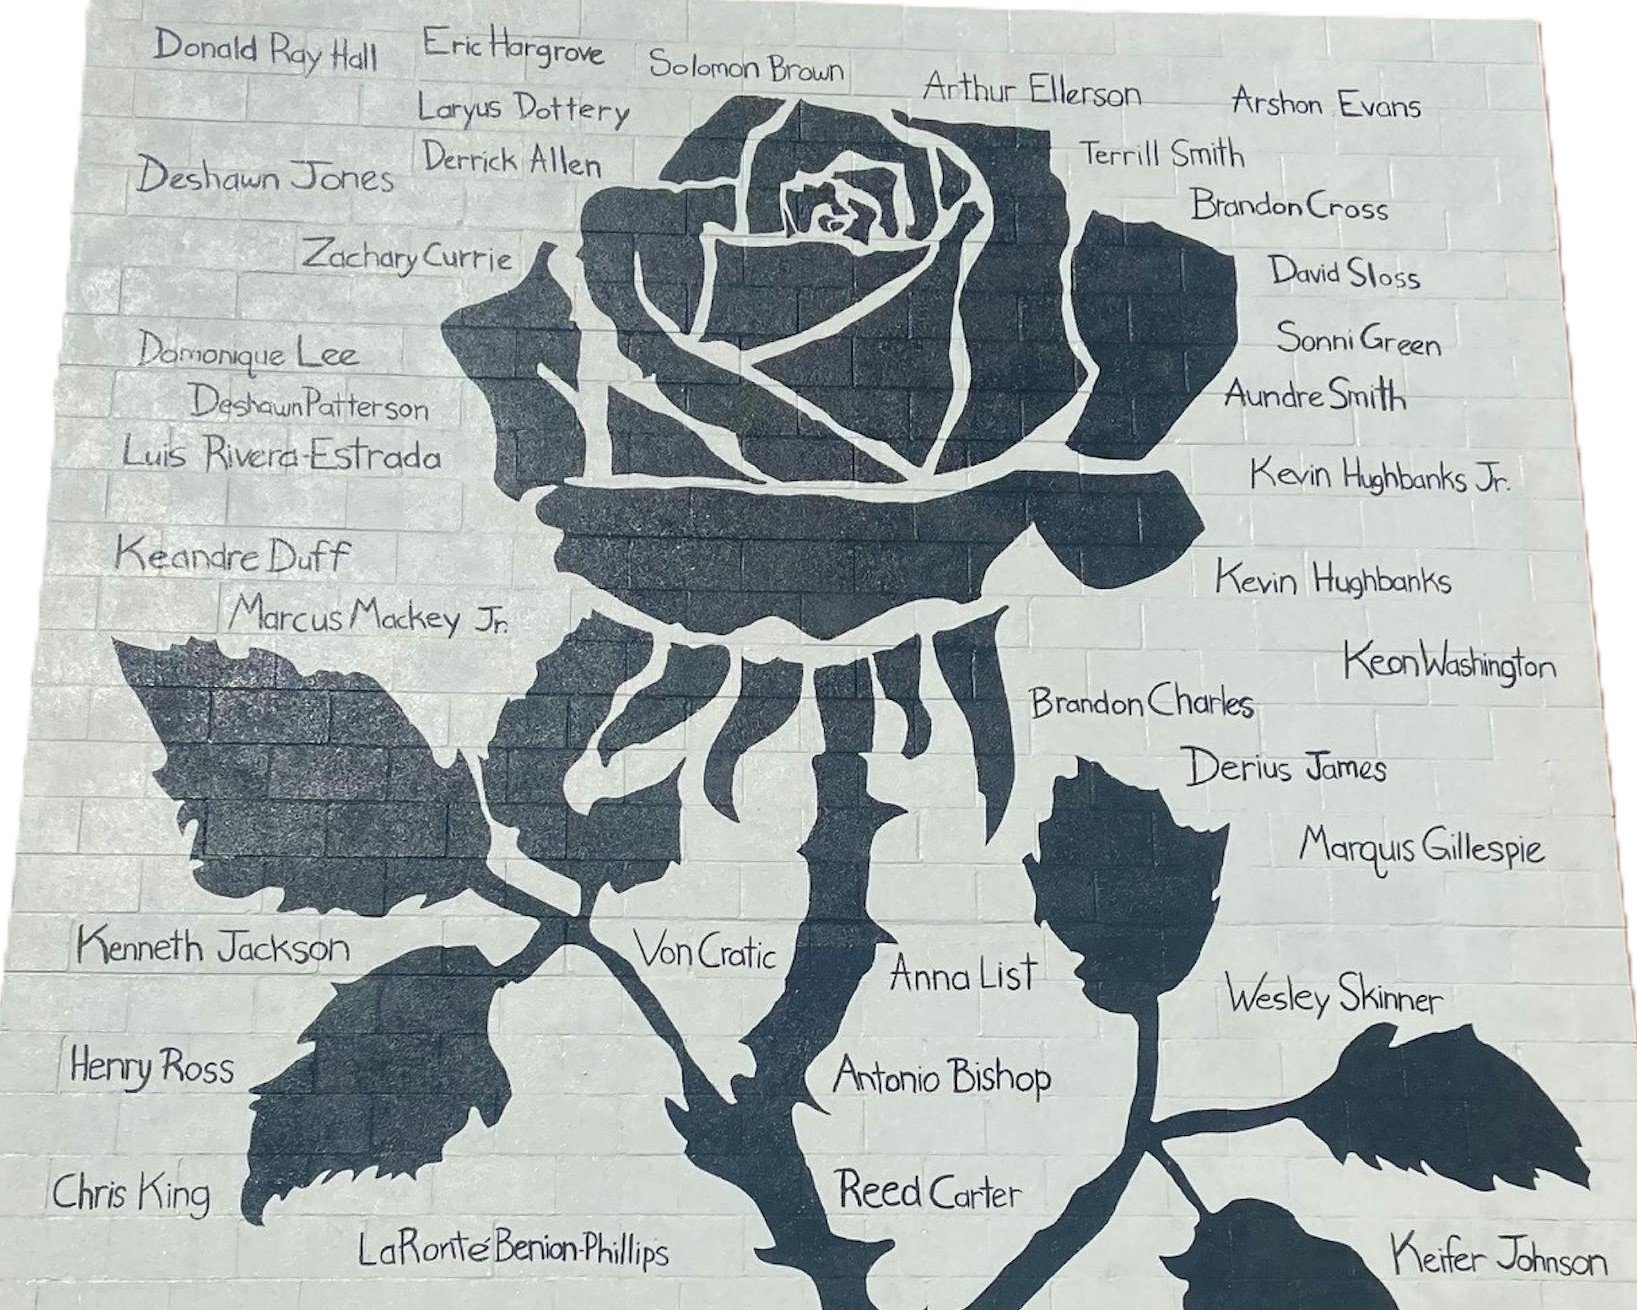 Donald Ray Hall
Eric Hargrove
Solomon Brown
Arthur Ellerson
Arshon Evans
Laryus Dottery
Derrick Allen
Terrill Smith
Deshawn Jones
Brandon Cross
Zachary Currie
David Sloss
Damonique Lee
Sonni Green
Deshawn Patterson
Aundre Smith
Luis Rivera-Estrada
Kevin Hughbanks Jr.
Keandre Duff
Kevin Hughbanks
Marcus Mackey Jr.
Keon Washington
Brandon Charles
Derius James
Marquis Gillespie
Kenneth Jackson
Von Cratic
Anna List
Wesley Skinner
Henry Ross
Antonio Bishop
Chris King
Reed Carter
LaRonté Benion-Phillips
Keifer Johnson